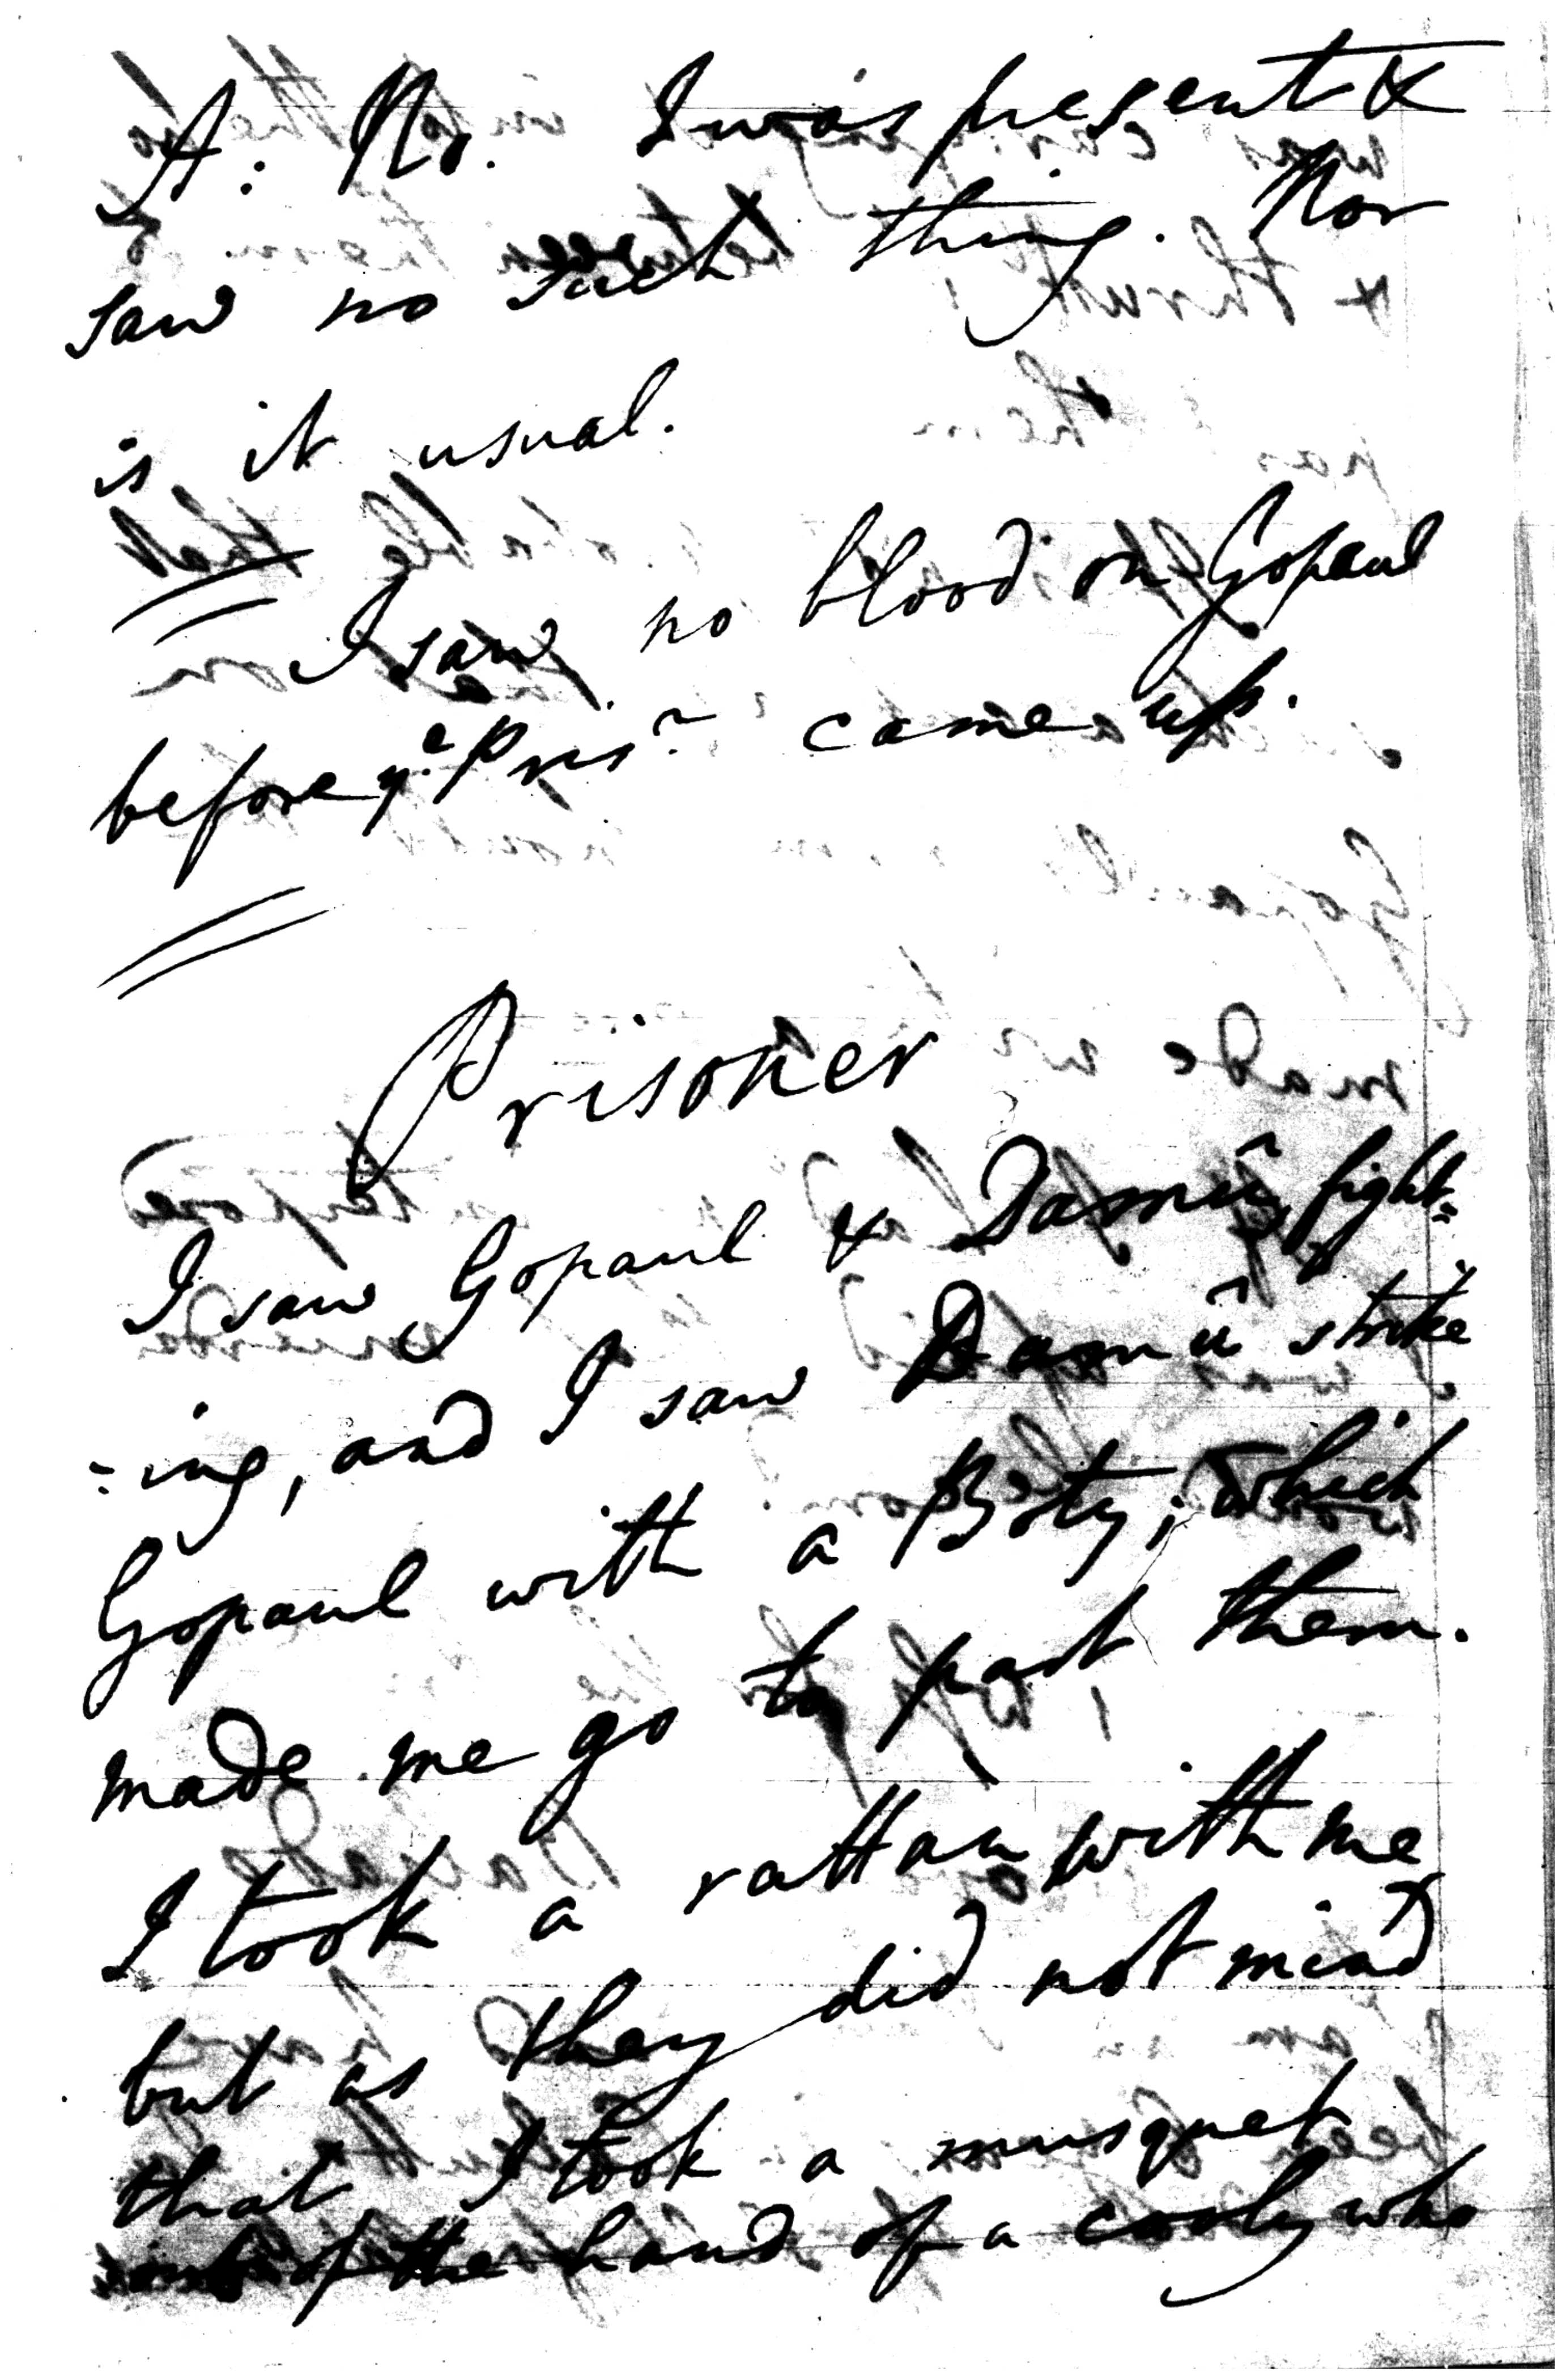 A: No. I was present &
saw no such thing. Nor
is it usual.
I saw no blood on Gopaul
before yᵉ Prisʳ came up.
Prisoner
I saw Gopaul & Damû fight=
=ing, and I saw Damû strike
Gopaul with a Boty; which
made me go to part them.
I took a rattan with me
but as they did not mind
that I took a musquet
out of the hand of a cooly who